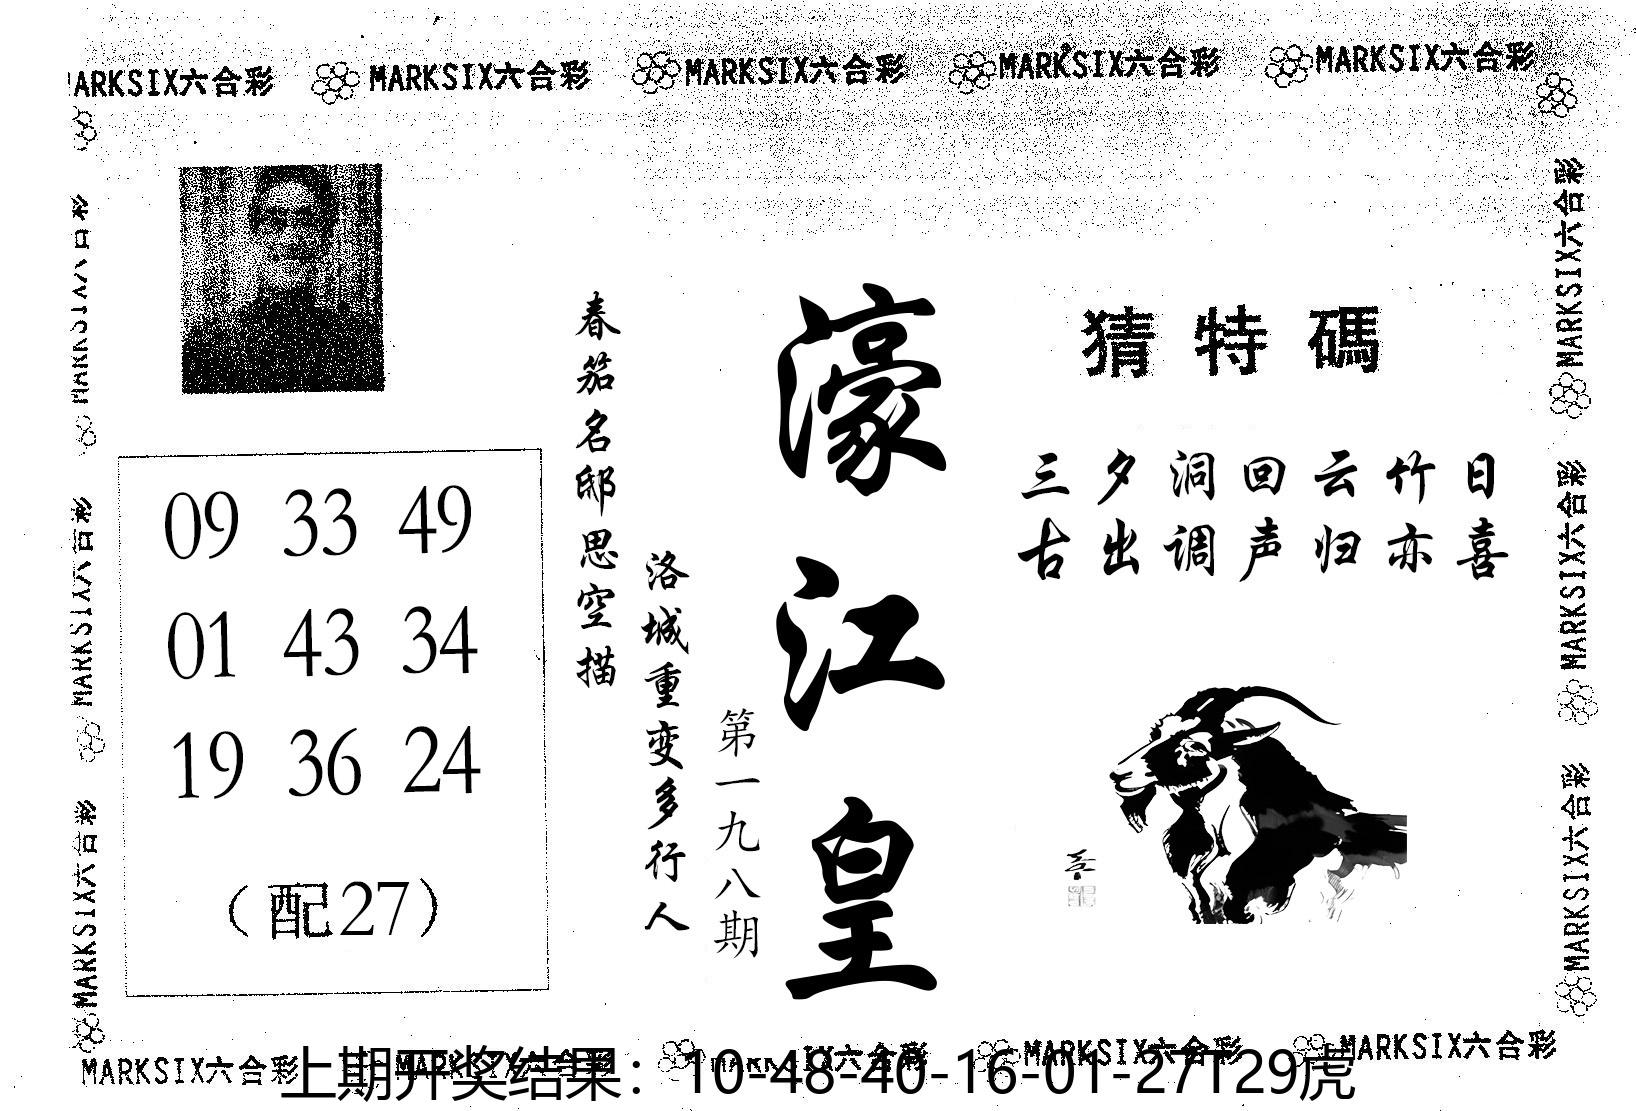 MARKSIX六合彩 MARKSIX六合彩 MARKSIX六合彩 MARKSIX六合彩 MARKSIX六合彩
MARKSIX六合彩
MARKSIX六合彩
MARKSIX六合彩
09 33 49
01 43 34
19 36 24
（配27）
春笳名邸思空描
洛城重变多行人
第一九八期
濠江皇
猜特碼
三夕洞回云竹日
古出调声归亦喜
MARKSIX六合彩
MARKSIX六合彩
MARKSIX六合彩
MARKSIX六合彩 MARKSIX六合彩 MARKSIX六合彩 MARKSIX六合彩 MARKSIX六合彩
上期开奖结果：10-48-40-16-01-27T29虎